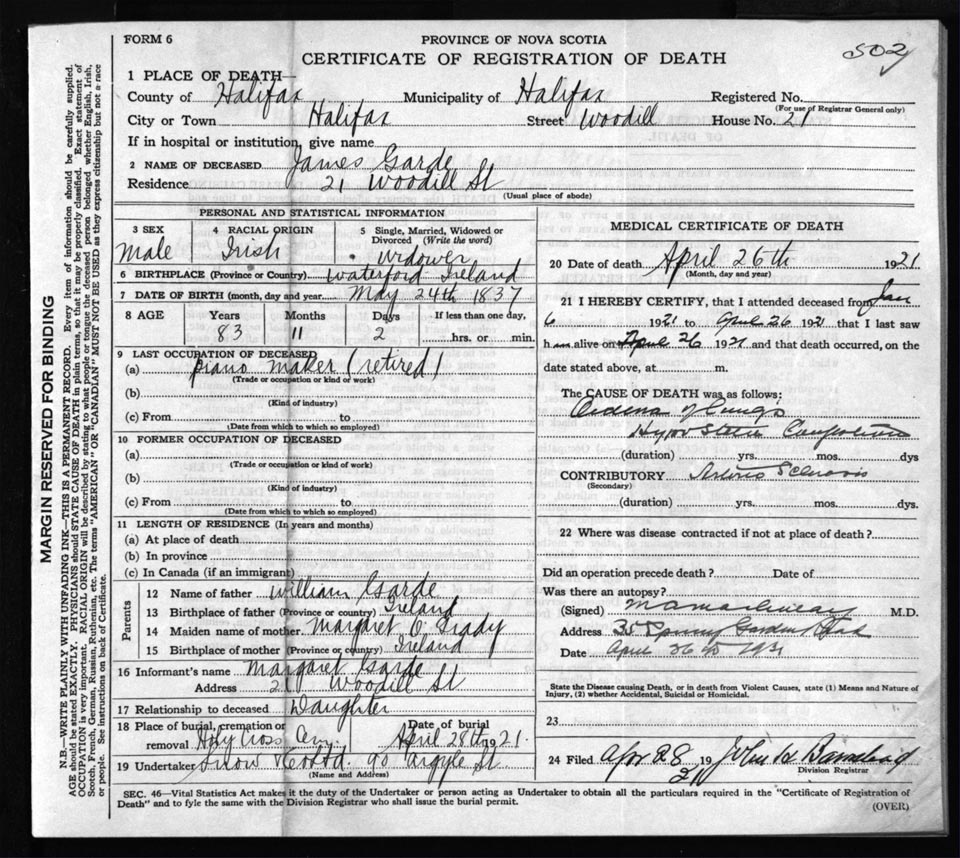 FORM 6
PROVINCE OF NOVA SCOTIA
CERTIFICATE OF REGISTRATION OF DEATH
502
1 PLACE OF DEATH—
County of Halifax Municipality of Halifax Registered No.
(For use of Registrar General only)
City or Town Halifax Street Woodill House No. 21
If in hospital or institution, give name
2 NAME OF DECEASED James Garde
Residence 21 Woodill St
(Usual place of abode)
PERSONAL AND STATISTICAL INFORMATION
3 SEX 4 RACIAL ORIGIN 5 Single, Married, Widowed or
Divorced (Write the word)
Male Irish widower
6 BIRTHPLACE (Province or Country) Waterford Ireland
7 DATE OF BIRTH (month, day and year) May 24th 1837
8 AGE Years Months Days If less than one day,
83 11 2 hrs. or min.
9 LAST OCCUPATION OF DECEASED
(a) piano maker (retired)
(Trade or occupation or kind or work)
(b)
(Kind of industry)
(c) From to
(Date from which to which so employed)
10 FORMER OCCUPATION OF DECEASED
(a)
(Trade or occupation or kind or work)
(b)
(Kind of industry)
(c) From to
(Date from which to which so employed)
11 LENGTH OF RESIDENCE (In years and months)
(a) At place of death
(b) In province
(c) In Canada (if an immigrant)
Parents
12 Name of father William Garde
13 Birthplace of father (Province or country) Ireland
14 Maiden name of mother Margret O'Grady
15 Birthplace of mother (Province or country) Ireland
16 Informant's name Margaret Garde
Address 21 Woodill St
17 Relationship to deceased Daughter
18 Place of burial, cremation or Date of burial
removal Holy Cross Cem April 28th 1921
19 Undertaker Snow & Co Ltd 90 Argyle St
(Name and Address)
MEDICAL CERTIFICATE OF DEATH
20 Date of death April 26th 1921
(Month, day and year)
21 I HEREBY CERTIFY, that I attended deceased from Jan
6 1921 to April 26 1921 that I last saw
h im alive on April 26 1921 and that death occurred, on the
date stated above, at m.
The CAUSE OF DEATH was as follows:
Oedema of Lungs
(duration) yrs. mos. dys
CONTRIBUTORY Arterio Sclerosis
(Secondary)
(duration) yrs. mos. dys.
22 Where was disease contracted if not at place of death?
Did an operation precede death? Date of
Was there an autopsy?
(Signed) M.D.
Address 35 Spring Garden Road
Date April 26 1921
State the Disease causing Death, or in death from Violent Causes, state (1) Means and Nature of
Injury, (2) whether Accidental, Suicidal or Homicidal.
23
24 Filed Apr 28 1921 John
Division Registrar
SEC. 46—Vital Statistics Act makes it the duty of the Undertaker or person acting as Undertaker to obtain all the particulars required in the "Certificate of Registration of
Death" and to fyle the same with the Division Registrar who shall issue the burial permit.
(OVER)
MARGIN RESERVED FOR BINDING
N.B.—WRITE PLAINLY WITH UNFADING INK—THIS IS A PERMANENT RECORD. Every item of information should be carefully supplied.
AGE should be stated EXACTLY. PHYSICIANS should STATE CAUSE OF DEATH in plain terms, so that it may be properly classified. Exact statement of
OCCUPATION is very important. RACIAL ORIGIN will be described by stating to what people or tongue the deceased person belonged whether English, Irish,
Scotch, French, German, Russian, Ruthenian, etc. The terms "AMERICAN" OR "CANADIAN" MUST NOT BE USED as they express citizenship but not a race
or people. See instructions on back of Certificate.